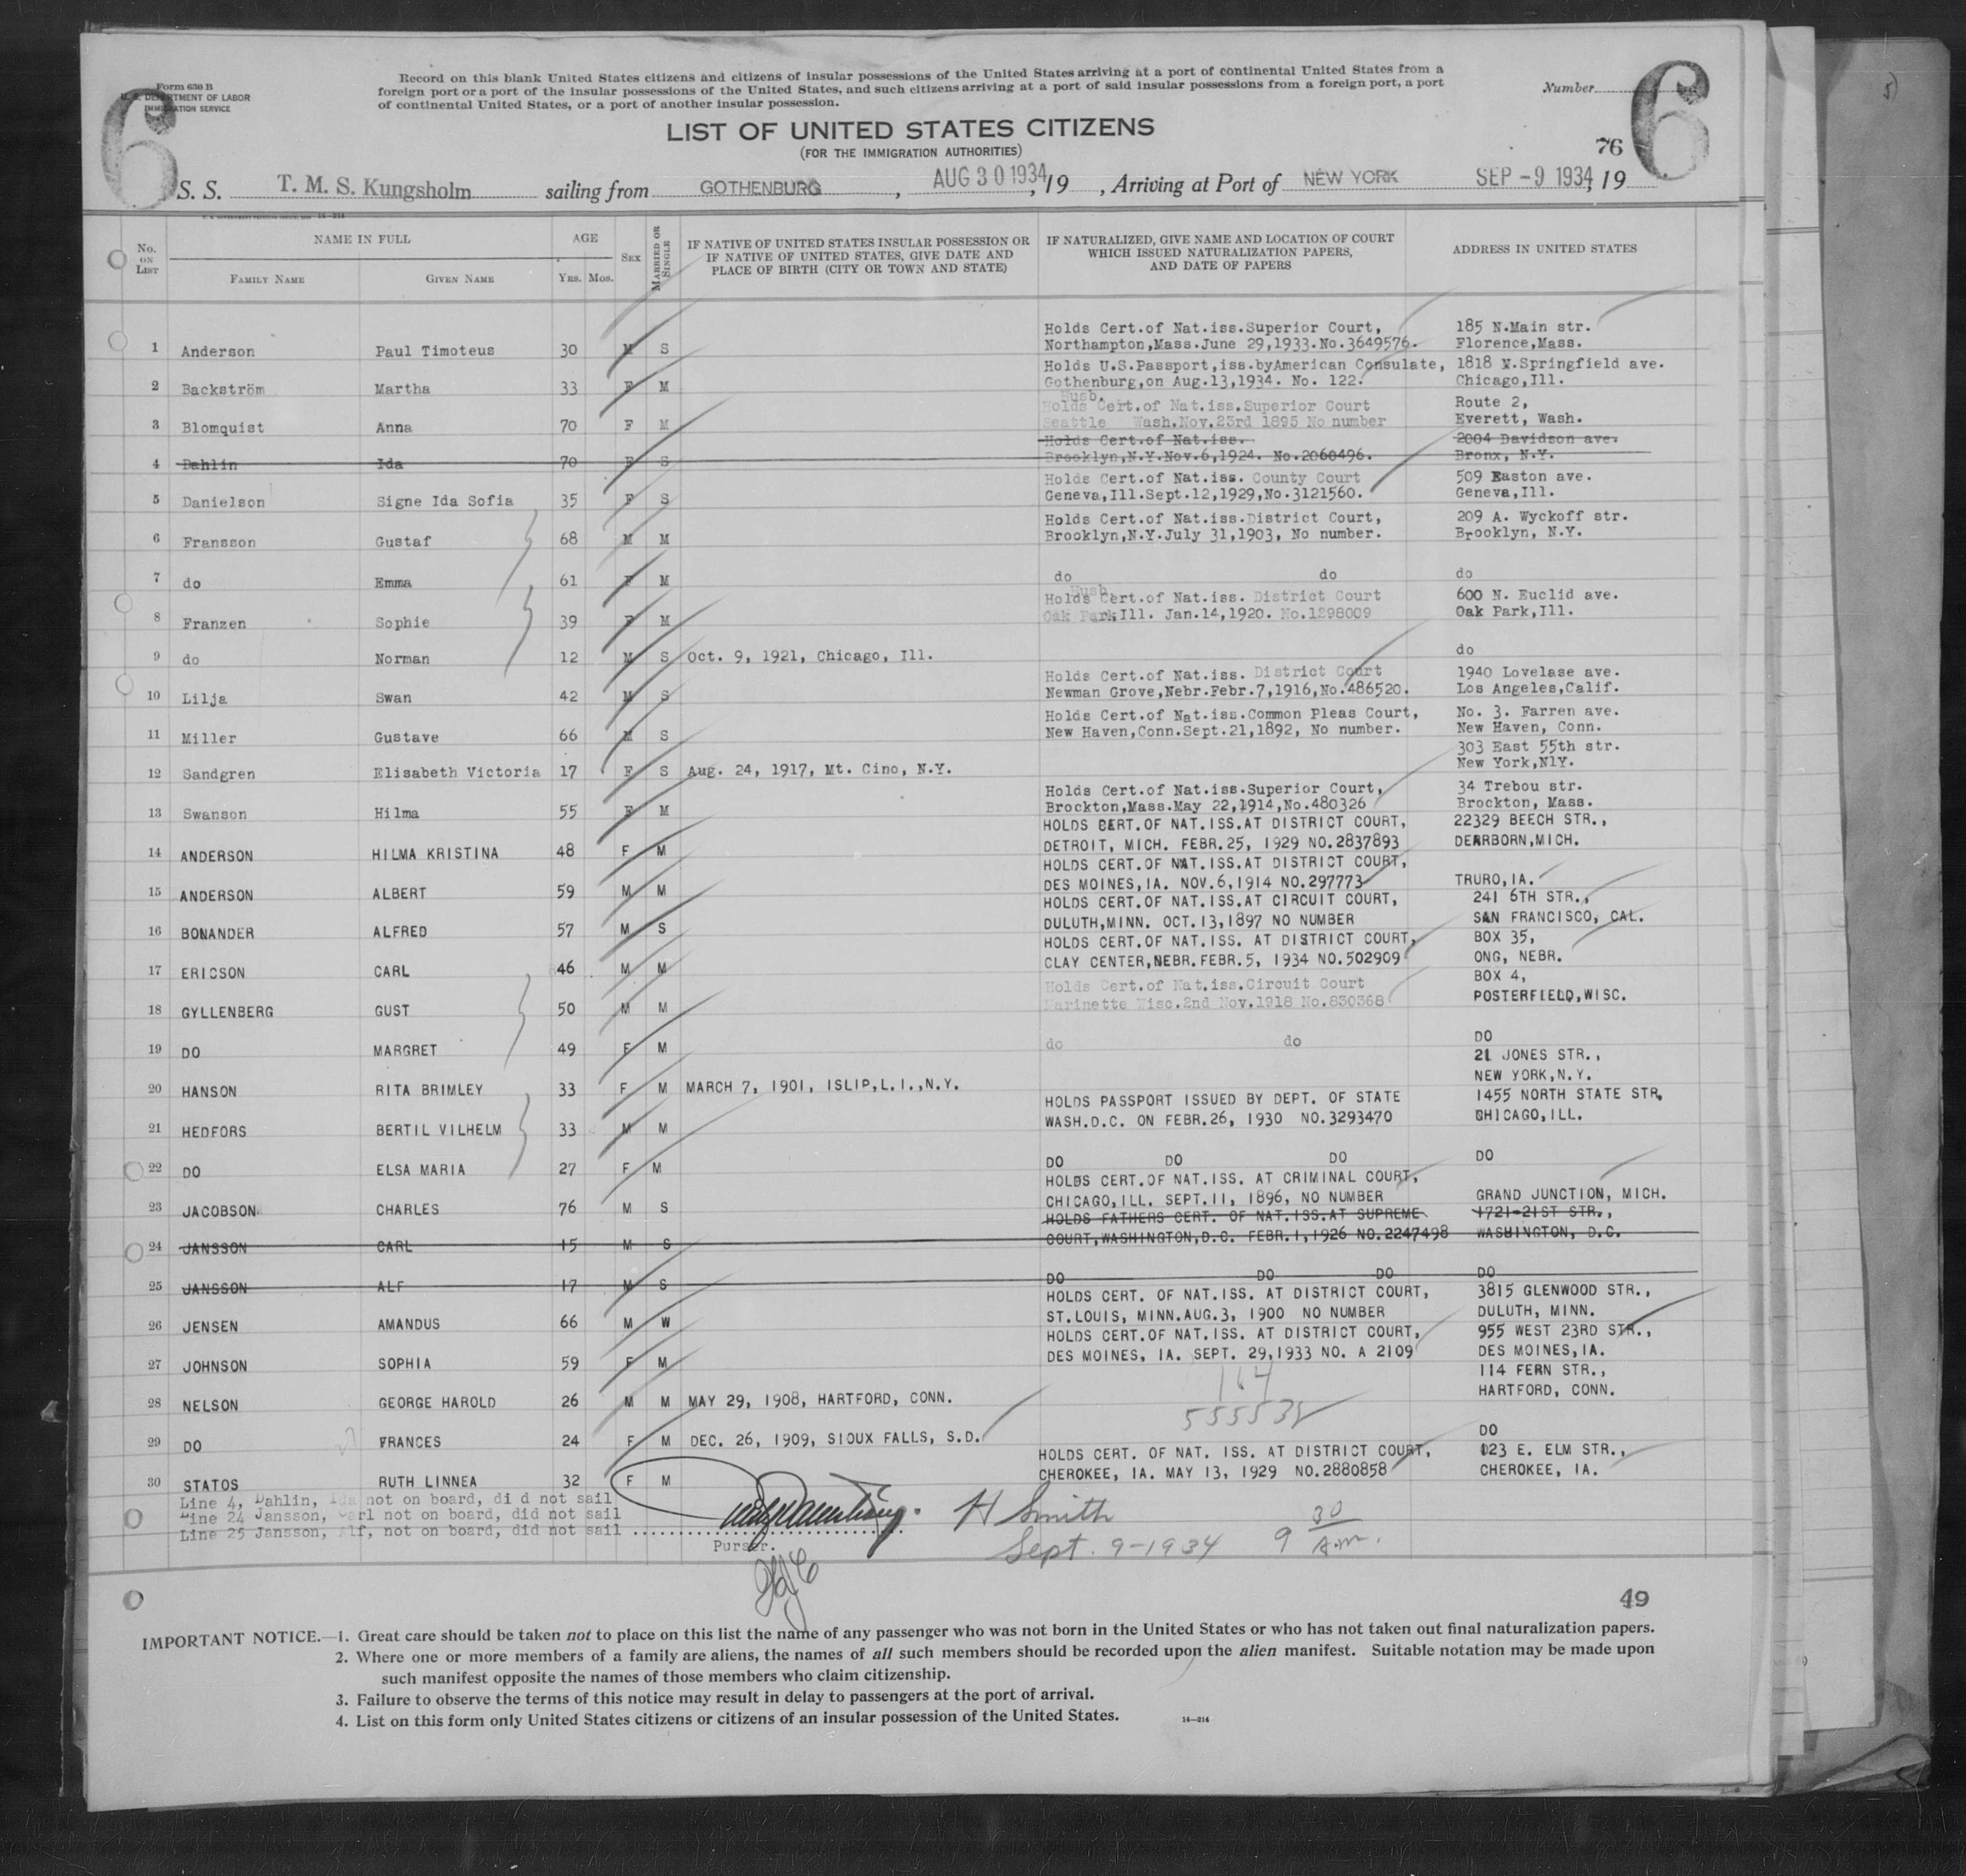 Form 630 B
U. S. DEPARTMENT OF LABOR
IMMIGRATION SERVICE
Record on this blank United States citizens and citizens of insular possessions of the United States arriving at a port of continental United States from a
foreign port or a port of the insular possessions of the United States, and such citizens arriving at a port of said insular possessions from a foreign port, a port
of continental United States, or a port of another insular possession.
Number
6
6
LIST OF UNITED STATES CITIZENS
(FOR THE IMMIGRATION AUTHORITIES)
76
S. S. T. M. S. Kungsholm sailing from GOTHENBURG, AUG 30 1934, 19 , Arriving at Port of NEW YORK SEP -9 1934, 19
No. ON LIST NAME IN FULL AGE SEX MARRIED OR SINGLE IF NATIVE OF UNITED STATES INSULAR POSSESSION OR IF NATIVE OF UNITED STATES, GIVE DATE AND PLACE OF BIRTH (CITY OR TOWN AND STATE) IF NATURALIZED, GIVE NAME AND LOCATION OF COURT WHICH ISSUED NATURALIZATION PAPERS, AND DATE OF PAPERS ADDRESS IN UNITED STATES
FAMILY NAME GIVEN NAME YRS. MOS.
Holds Cert.of Nat.iss.Superior Court, 185 N.Main str.
1 Anderson Paul Timoteus 30 M S Northampton,Mass.June 29,1933.No.3649576. Florence,Mass.
Holds U.S.Passport,iss.byAmerican Consulate, 1818 N.Springfield ave.
2 Backström Martha 33 F M Gothenburg,on Aug.13,1934. No. 122. Chicago,Ill.
Husb.
Holds Cert.of Nat.iss.Superior Court Route 2,
3 Blomquist Anna 70 F M Seattle Wash.Nov.23rd 1895 No number Everett, Wash.
Holds Cert.of Nat.iss. 2004 Davidson ave.
4 Dahlin Ida 70 F S Brooklyn,N.Y.Nov.6,1924. No.2060496. Bronx, N.Y.
Holds Cert.of Nat.iss. County Court 509 Easton ave.
5 Danielson Signe Ida Sofia 35 F S Geneva,Ill.Sept.12,1929,No.3121560. Geneva,Ill.
Holds Cert.of Nat.iss.District Court, 209 A. Wyckoff str.
6 Fransson Gustaf 68 M M Brooklyn,N.Y.July 31,1903, No number. Brooklyn, N.Y.
7 do Emma 61 F M do do do
Husb.
Holds Cert.of Nat.iss. District Court 600 N. Euclid ave.
8 Franzen Sophie 39 F M Oak Park,Ill. Jan.14,1920. No.1298009 Oak Park,Ill.
9 do Norman 12 M S Oct. 9, 1921, Chicago, Ill. do
Holds Cert.of Nat.iss. District Court 1940 Lovelase ave.
10 Lilja Swan 42 M S Newman Grove,Nebr.Febr.7,1916,No.486520. Los Angeles,Calif.
Holds Cert.of Nat.iss.Common Pleas Court, No. 3. Farren ave.
11 Miller Gustave 66 M S New Haven,Conn.Sept.21,1892, No number. New Haven, Conn.
303 East 55th str.
12 Sandgren Elisabeth Victoria 17 F S Aug. 24, 1917, Mt. Cino, N.Y. New York,NlY.
Holds Cert.of Nat.iss.Superior Court, 34 Trebou str.
13 Swanson Hilma 55 F M Brockton,Mass.May 22,1914,No.480326 Brockton, Mass.
HOLDS CERT.OF NAT.ISS.AT DISTRICT COURT, 22329 BEECH STR.,
14 ANDERSON HILMA KRISTINA 48 F M DETROIT, MICH. FEBR.25, 1929 NO.2837893 DEARBORN,MICH.
HOLDS CERT.OF NAT.ISS.AT DISTRICT COURT,
15 ANDERSON ALBERT 59 M M DES MOINES,IA. NOV.6,1914 NO.297773 TRURO,IA.
HOLDS CERT.OF NAT.ISS.AT CIRCUIT COURT, 241 6TH STR.,
16 BONANDER ALFRED 57 M S DULUTH,MINN. OCT.13,1897 NO NUMBER SAN FRANCISCO, CAL.
HOLDS CERT.OF NAT.ISS. AT DISTRICT COURT, BOX 35,
17 ERICSON CARL 46 M M CLAY CENTER,NEBR.FEBR.5, 1934 NO.502909 ONG, NEBR.
Holds Cert.of Nat.iss.Circuit Court BOX 4,
18 GYLLENBERG GUST 50 M M Marinette Wisc.2nd Nov.1918 No.830368 POSTERFIELD,WISC.
19 DO MARGRET 49 F M do do DO
21 JONES STR.,
20 HANSON RITA BRIMLEY 33 F M MARCH 7, 1901, ISLIP,L.I.,N.Y. NEW YORK,N.Y.
HOLDS PASSPORT ISSUED BY DEPT. OF STATE 1455 NORTH STATE STR,
21 HEDFORS BERTIL VILHELM 33 M M WASH.D.C. ON FEBR.26, 1930 NO.3293470 CHICAGO,ILL.
22 DO ELSA MARIA 27 F M DO DO DO DO
HOLDS CERT.OF NAT.ISS. AT CRIMINAL COURT,
23 JACOBSON CHARLES 76 M S CHICAGO,ILL. SEPT.11, 1896, NO NUMBER GRAND JUNCTION, MICH.
HOLDS FATHERS CERT. OF NAT.ISS.AT SUPREME 1721-21ST STR.,
24 JANSSON CARL 15 M S COURT,WASHINGTON,D.C. FEBR.1,1926 NO.2247498 WASHINGTON, D.C.
25 JANSSON ALF 17 M S DO DO DO DO
HOLDS CERT. OF NAT.ISS. AT DISTRICT COURT, 3815 GLENWOOD STR.,
26 JENSEN AMANDUS 66 M W ST.LOUIS, MINN.AUG.3, 1900 NO NUMBER DULUTH, MINN.
HOLDS CERT.OF NAT.ISS. AT DISTRICT COURT, 955 WEST 23RD STR.,
27 JOHNSON SOPHIA 59 F M DES MOINES, IA. SEPT. 29,1933 NO. A 2109 DES MOINES,IA.
164 114 FERN STR.,
28 NELSON GEORGE HAROLD 26 M M MAY 29, 1908, HARTFORD, CONN. HARTFORD, CONN.
555538
29 DO FRANCES 24 F M DEC. 26, 1909, SIOUX FALLS, S.D. DO
HOLDS CERT. OF NAT. ISS. AT DISTRICT COURT, 123 E. ELM STR.,
30 STATOS RUTH LINNEA 32 F M CHEROKEE, IA. MAY 13, 1929 NO.2880858 CHEROKEE, IA.
Line 4, Dahlin, Ida not on board, did not sail
Line 24 Jansson, Carl not on board, did not sail
Line 25 Jansson, Alf, not on board, did not sail
Purser.
H Smith
Sept. 9-1934 9 30 A.m.
49
IMPORTANT NOTICE.—1. Great care should be taken not to place on this list the name of any passenger who was not born in the United States or who has not taken out final naturalization papers.
2. Where one or more members of a family are aliens, the names of all such members should be recorded upon the alien manifest. Suitable notation may be made upon
such manifest opposite the names of those members who claim citizenship.
3. Failure to observe the terms of this notice may result in delay to passengers at the port of arrival.
4. List on this form only United States citizens or citizens of an insular possession of the United States.
14—214